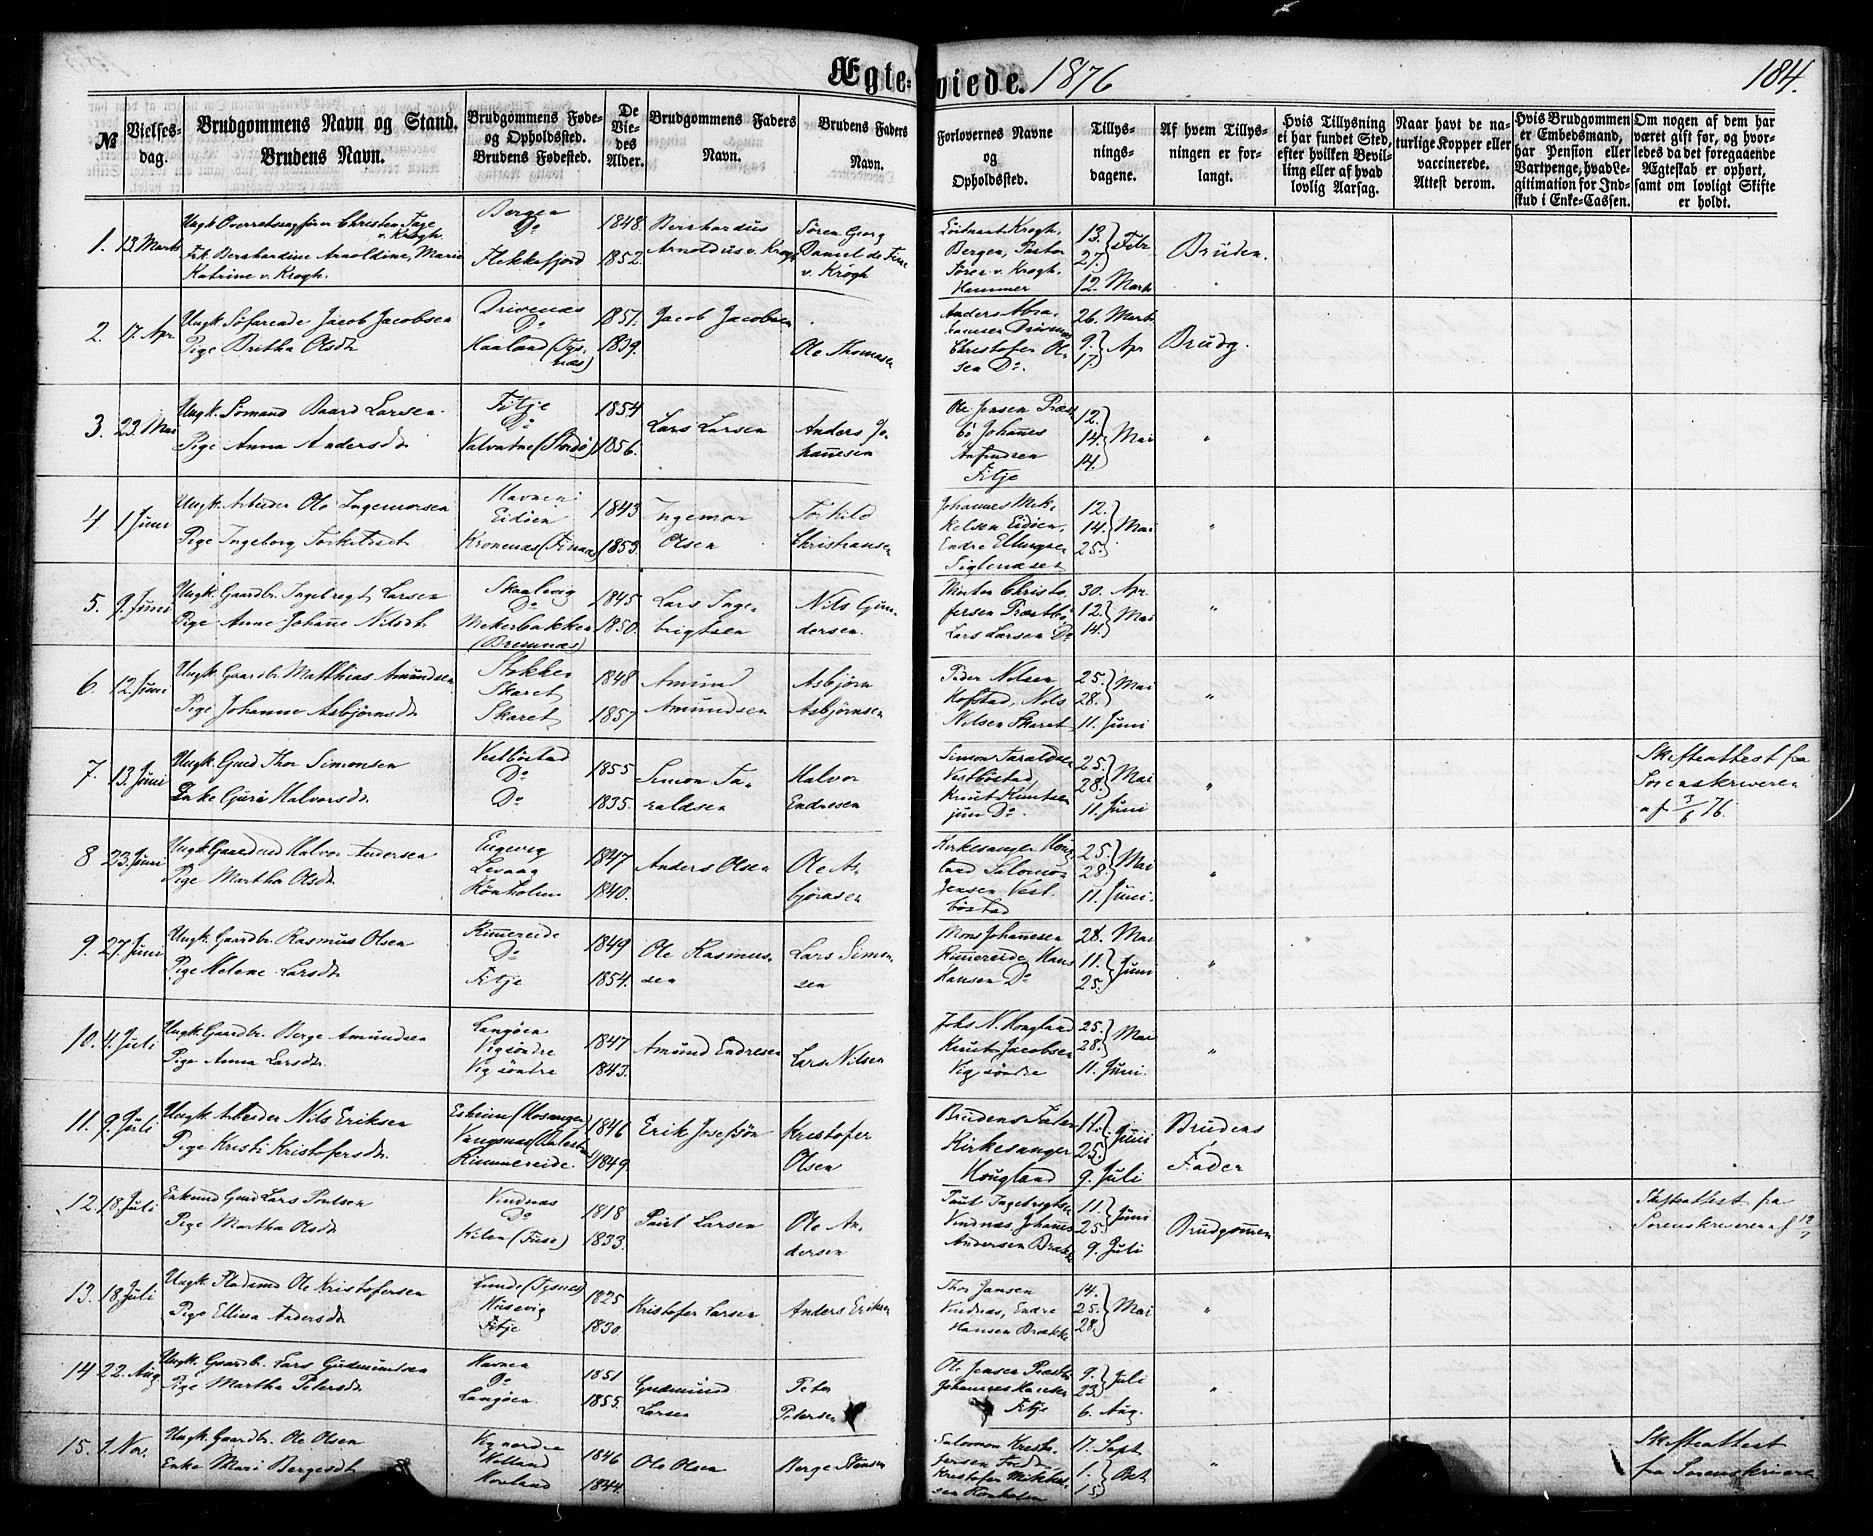 Ægteviede. 1876
184.
№
Vielses-dag.
Brudgommens Navn og Stand.
Brudens Navn.
Brudgommens Føde-
og Opholdssted.
Brudens Fødested.
De Vie-des Alder.
Brudgommens Faders
Navn.
Brudens Faders
Navn.
Forlovernes Navne
og
Opholdssted.
Tillys-
nings-
dagene.
Af hvem Tillys-
ningen er for-
langt.
Hvis Tillysning
ei har fundet Sted,
efter hvilken Bevil-
ling eller af hvad
lovlig Aarsag.
Naar havt de na-
turlige Kopper eller
vaccinerede.
Attest derom.
Hvis Brudgommen
er Embedsmand,
har Pension eller
Vartpenge, hvad Le-
gitimation for Ind-
skud i Enke-Cassen.
Om nogen af dem har
været gift før, og hvor-
ledes da det foregaaende
Ægteskab er ophørt,
samt om lovligt Skifte
er holdt.
1. 13 Marts
Ungk. Overretssagfører Christen Fage
v. Krogh.
Frk. Bernhardine Arnoldine, Marie
Katrine v. Krogh.
Bergen
Do
Flekkefjord
1848.
1852.
Bernhardus
Arnoldus v. Krogh
Søren Georg
Daniel de Fine
v. Krogh
Løitnant Krogh,
Bergen, Pastor
Søren v. Krogh,
Hammer
13. 27. Febr
12. Marts
Bruden.
2. 17. Apr
Ungk. Søfarende Jacob Jacobsen
Pige Britha Olsdr
Drivenæs
Do
Haaland (Tys-
næs)
1851.
1839.
Jacob Jacobsen
Ole Thomasen
Anders Abra-
hamsen Drivenæs
Christofer Ol-
sen Do.
26. Marts
9. 17. Apr
Brudg.
3. 23. Mai
Ungk. Sømand Baard Larsen
Pige Anna Andersdr
Fitje
Do
Valvatne (Stordø)
1854
1856.
Lars Larsen
Anders Jo-
hanesen
Ole Jensen Præst-
bø Johanes
Fitje
12. 14. 14. Mai
"
4 1 Juni
Ungk. Arbeider Ole Ingemorsen
Pige Ingeborg Torkildsdr
Havnen
Eidøen
Kronenæs (Finaas)
1843
1853.
Ingemor
Olsen
Torkild
Christiansen
Johannes Mik-
kelsen Eidøen,
Endre Ellingsen
Siglenæset
12. 14. 25. Mai
"
5. 9. Juni
Ungk. Gaardbr. Ingebregt Larsen
Pige Anne Johane Nilsdr
Skaalevig
Do
Mekerbakken
(Bremnæs)
1845
1850.
Lars Inge-
brigtsen
Nils Gun-
dersen.
Morten Christo-
fersen Præstbø,
Lars Larsen Do
30. Apr.
12. 14. Mai
"
6. 12. Juni
Ungk. Gaardbr. Matthias Amundsen
Pige Johanne Asbjørnsdr
Stokken
Skaret
Skaret
1848
1857
Amund
Amundsen
Asbjørn
Asbjørnsen
Peder Nilsen
Hofstad, Nils
Nilsen Skaret
25. 28. Mai
11. Juni
"
7. 13. Juni
Ungk. Gmd Thor Simonsen
Enke Guro Halvorsdr
Vestbøstad
Do
Do
1855
1835.
Simon Ta-
raldsen
Halvor
Endresen
Simon Taraldsen
Vestbøstad,
Knut Knutsen
jun Do.
25. 28. Mai
11. Juni
"
Skifteattest fra
Sorenskriveren
af 3/6 76.
8 23. Juni
Ungk. Gaardmd Halvor Andersen
Pige Martha Olsdr
Engevig
Levaag
Kønholm
1847
1840.
Anders Olsen
Ole As-
bjørnsen
Kirkesanger Houg-
land Salomon
Jensen Vest-
bøstad
25. 28. Mai
11. Juni.
"
9. 27. Juni
Ungk. Gaardbr. Rasmus Olsen
Pige Helene Larsdr
Rimereide
Do
Fitje
1849
1854.
Ole Rasmus-
sen
Lars Simon-
sen
Mons Johanesen
Rimereide, Hans
Hansen Do
28. Mai
11. 25. Juni
"
10. 4. Juli
Ungk. Gaardbr. Berge Amundsen
Pige Anna Larsdr
Langøen
Vig søndre
Vig søndre
1847
1843.
Amund Endresen
Lars Nilsen
Johs N. Hougland
Knut Jacobsen
Vig søndre
25. 28. Mai
11. Juni.
"
11. 9. Juli
Ungk. Arbeider Nils Eriksen
Pige Kristi Kristofersdr
Eskeim (Hosanger)
Vangsnæs
Rimmereide
1846
1849.
Erik Josefsøn
Kristofer
Olsen
Brudens Fader
Kirkesanger
Hougland
11. 25. Juni
9. Juli
Brudens
Fader
12. 18. Juli
Enkemd Gmd Lars Poulsen
Pige Martha Olsdr
Vindnæs
Do
Kilen (Fuse)
1818
1833.
Poul Larsen
Ole An-
dersen
Poul Ingebrigtsen
Vindnæs, Johanes
Andersen Brække
11. 25. Juni
9. Juli
Brudgommen
Skifteattest fra
Sorenskriveren af 12/7
13. 18. Juli
Ungk. Pladsmd Ole Kristofersen
Pige Ellina Andersdr
Lunde (Tysnæs)
Husevig
Fitje
1825
1830.
Kristofer Larsen
Anders Eriksen
Thor Jansen
Vindnæs, Endre
Hansen Brække
14. 25. 28. Mai
"
14 22. Aug
Ungk. Gaardbr. Lars Gudmundsen
Pige Martha Petersdr
Havnen
Do
Langøen
1851
1855.
Gudmund
Larsen
Peter
Petersen
Ole Jensen Præstbø
Johannes Hansen
Fitje
9. 23. Juli
6. Aug.
"
15. 1. Nov.
Ungk. Gaardbr. Ole Olsen
Enke Mari Bergesdr
Vig nordre
Hovland
1846
1844.
Ole Olsen
Berge Steensen
Salomon Krist-
fersen
Kristofer Mikkel-
sen Kønholm
17. Sept
1. 15. Oct.
"
Skifteattest
fra Sorenskriveren